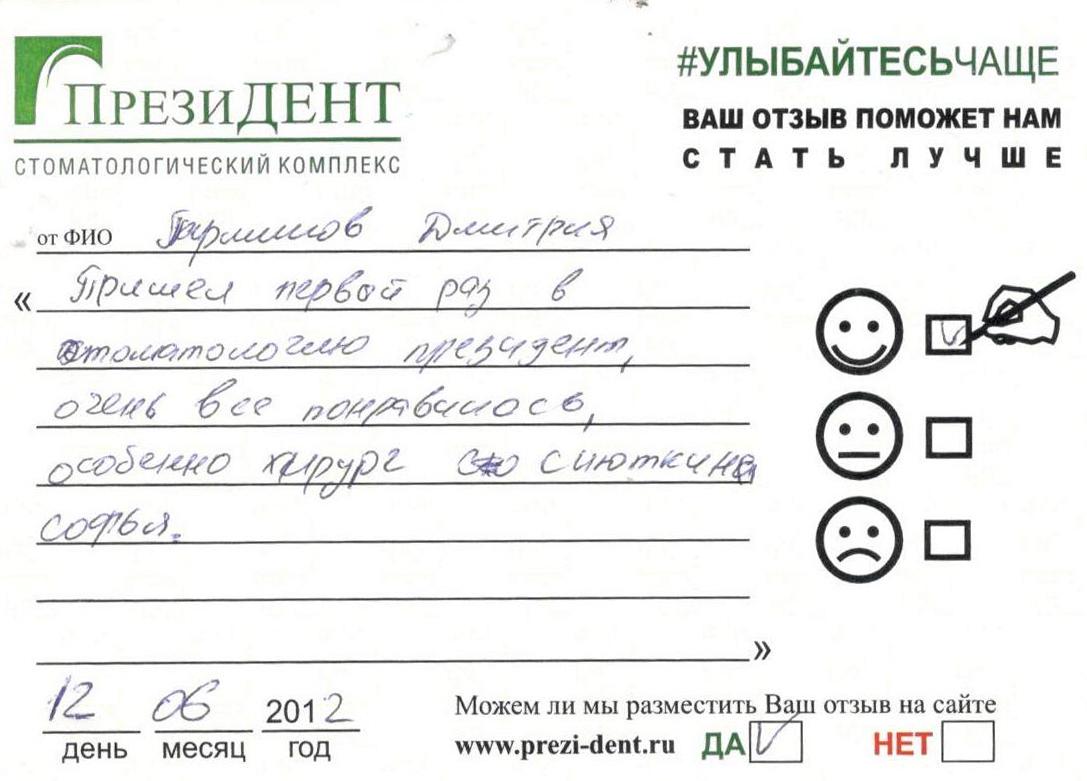 ПРЕЗИДЕНТ
СТОМАТОЛОГИЧЕСКИЙ КОМПЛЕКС
#УЛЫБАЙТЕСЬЧАЩЕ
ВАШ ОТЗЫВ ПОМОЖЕТ НАМ
СТАТЬ ЛУЧШЕ
от ФИО Дмитрия
« Пришел первый раз в
стоматологию президент,
очень все понравилось,
особенно хирург Сиюткина
Софья.
»
12 06 2012
день месяц год
Можем ли мы разместить Ваш отзыв на сайте
www.prezi-dent.ru ДА НЕТ